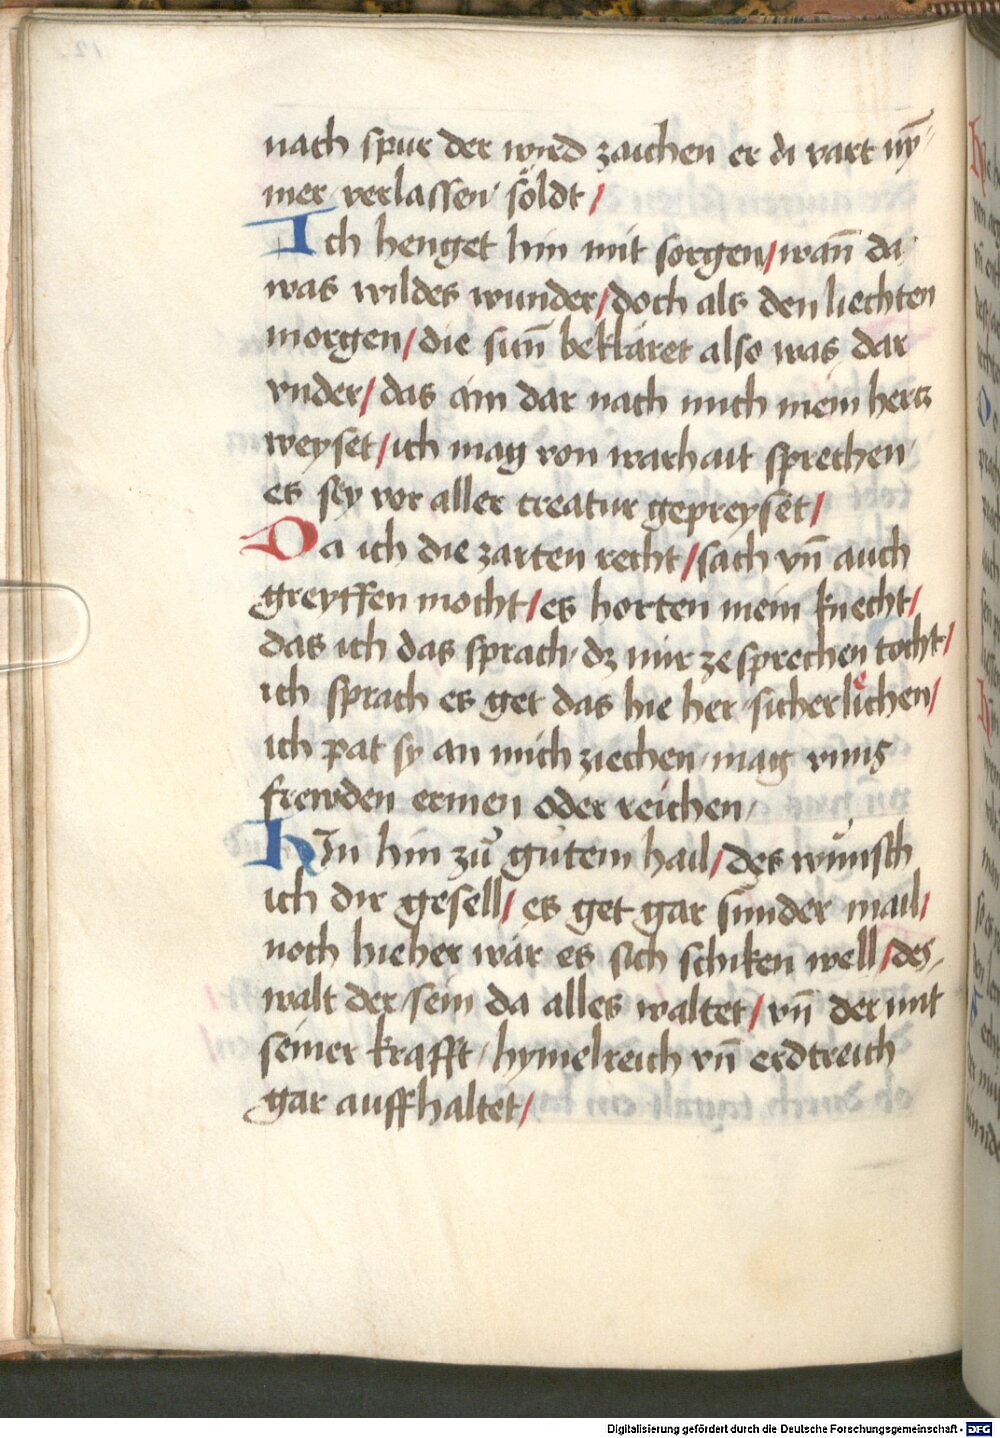 nach spur der wird zaichen er di vart ny̅
mer verlassen söldt /
Ich henget hin mit sorgen / wan̅ da
was wildes wunder / doch als den liechten
morgen / die sun̅ bekläret also was dar
vnder / das ain dar nach mich mein hertz
weyset / ich mag von warhait sprechen
es sey vor aller creatur gepreyset /
Da ich die zarten recht / sach vn̅ auch
greyffen mocht / es horten mein knecht /
das ich das sprach / dz mir ze sprechen tocht /
ich sprach es get das hie her sicherlichen /
ich pat sy an mich ziechen / mag vnns
frewden ermen oder reichen /
HIn hin zů gůtem hail / des wünsch
ich dir gesell / es get gar sunder mail /
noch hieher wär es sich schiken well / des
walt der sein da alles waltet / vn̅ der mit
seiner krafft / hymelreich vn̅ erdtreich
gar auffhaltet /
Digitalisierung gefördert durch die Deutsche Forschungsgemeinschaft - DFG